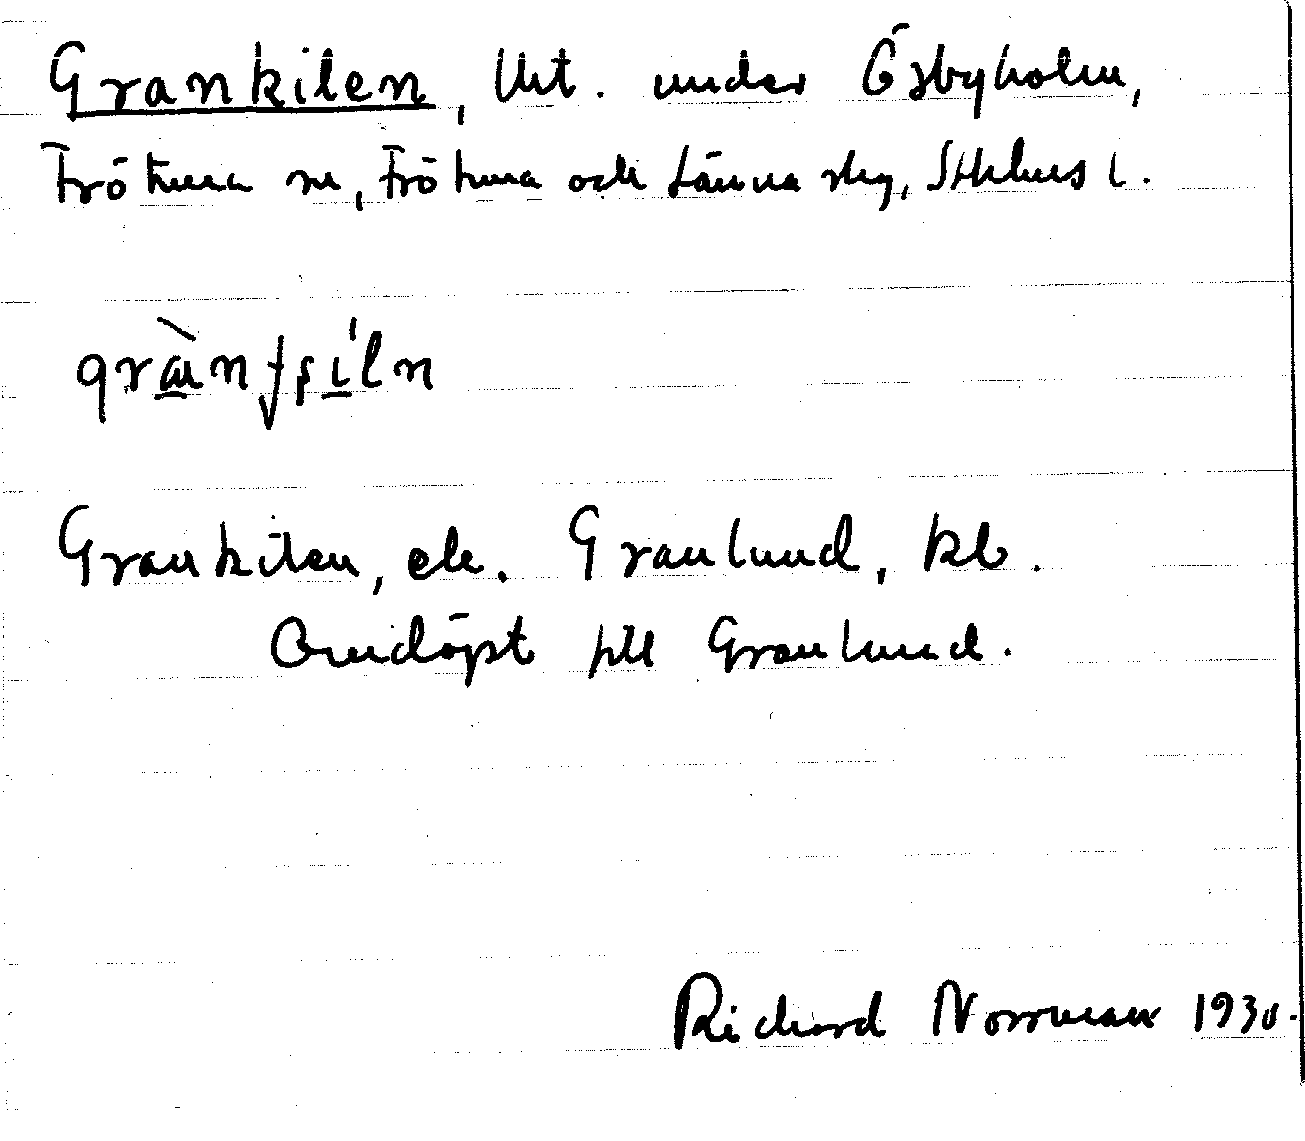 Grankilen, lht. under Ösbyholm,
Frötuna sn, Frötuna och Länna skg, Sthlms l.
Grankilen, el. Granlund, lbl.
Omdöpt till Granlund.
Richard Norrman 1930.